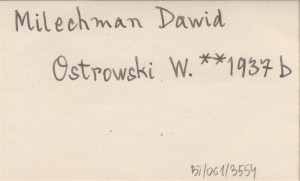 Milechman Dawid
Ostrowski W. **1937 b
51/061/3554